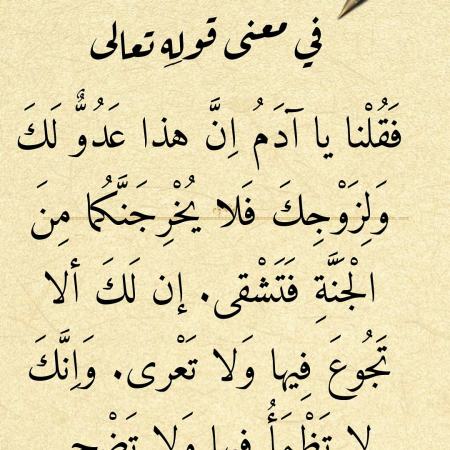 في معنى قولِهِ تعالى
فَقُلْنا يا آدَمُ اِنَّ هذا عَدُوٌّ لَكَ
وَلِزَوْجِكَ فَلا يُخْرِجَنَّكُما مِنَ
الْجَنَّةِ فَتَشْقى. إن لَكَ ألا
تَجُوعَ فِيها وَلا تَعْرى. وَاِنَّكَ
لا تَظْمَأُ فيها وَلا تَضْحى